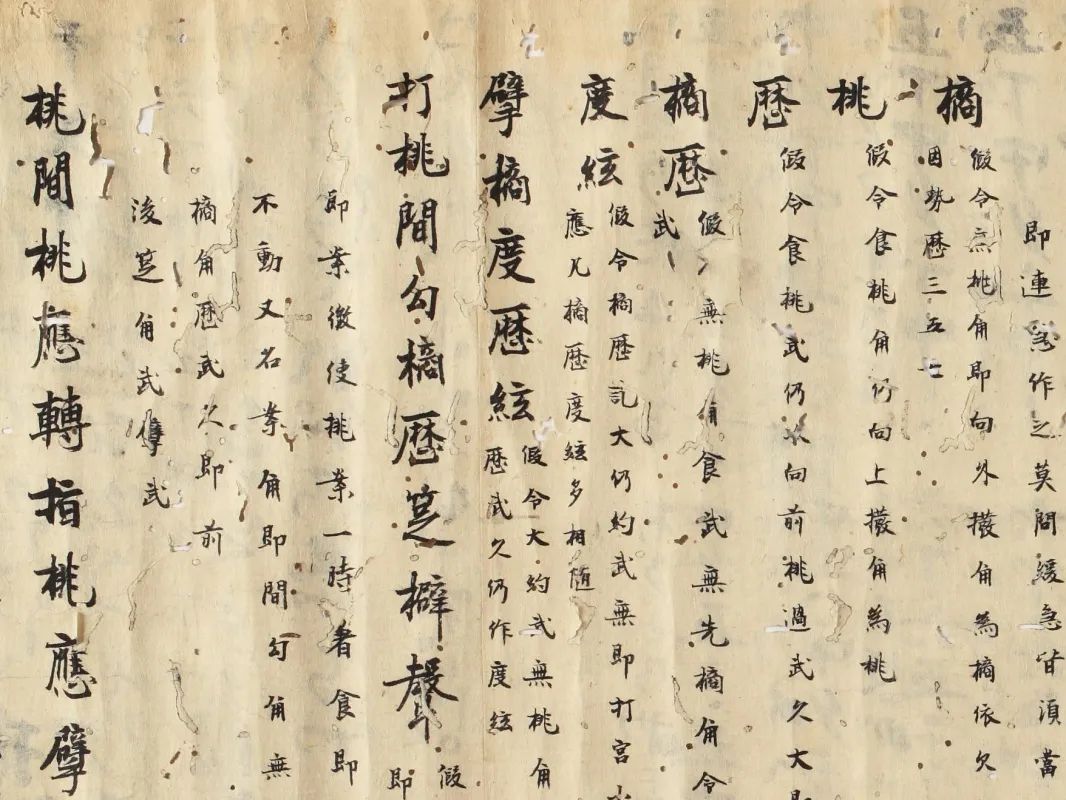 即連急作之莫問緩急皆須當
摘 假令無挑角即向外撥角為摘依欠
因勢歷三五七
挑 假令食挑角仍向上撥角為挑
歷 假令食挑武仍以向前挑過武久大即
摘歷 假令無挑角食武無先摘角令
武
度絃 假令摘歷訖大仍約武無即打宮
應凡摘歷度絃多相隨
擘摘度歷絃 假令大約武無挑角
歷武久仍作度絃
打挑間勾摘歷笁擗聲 假
即
即案徵使挑案一時者食即
不動又名案角即間勾角無
摘角歷武久即前
後笁角武武
挑間挑應轉指挑應擘